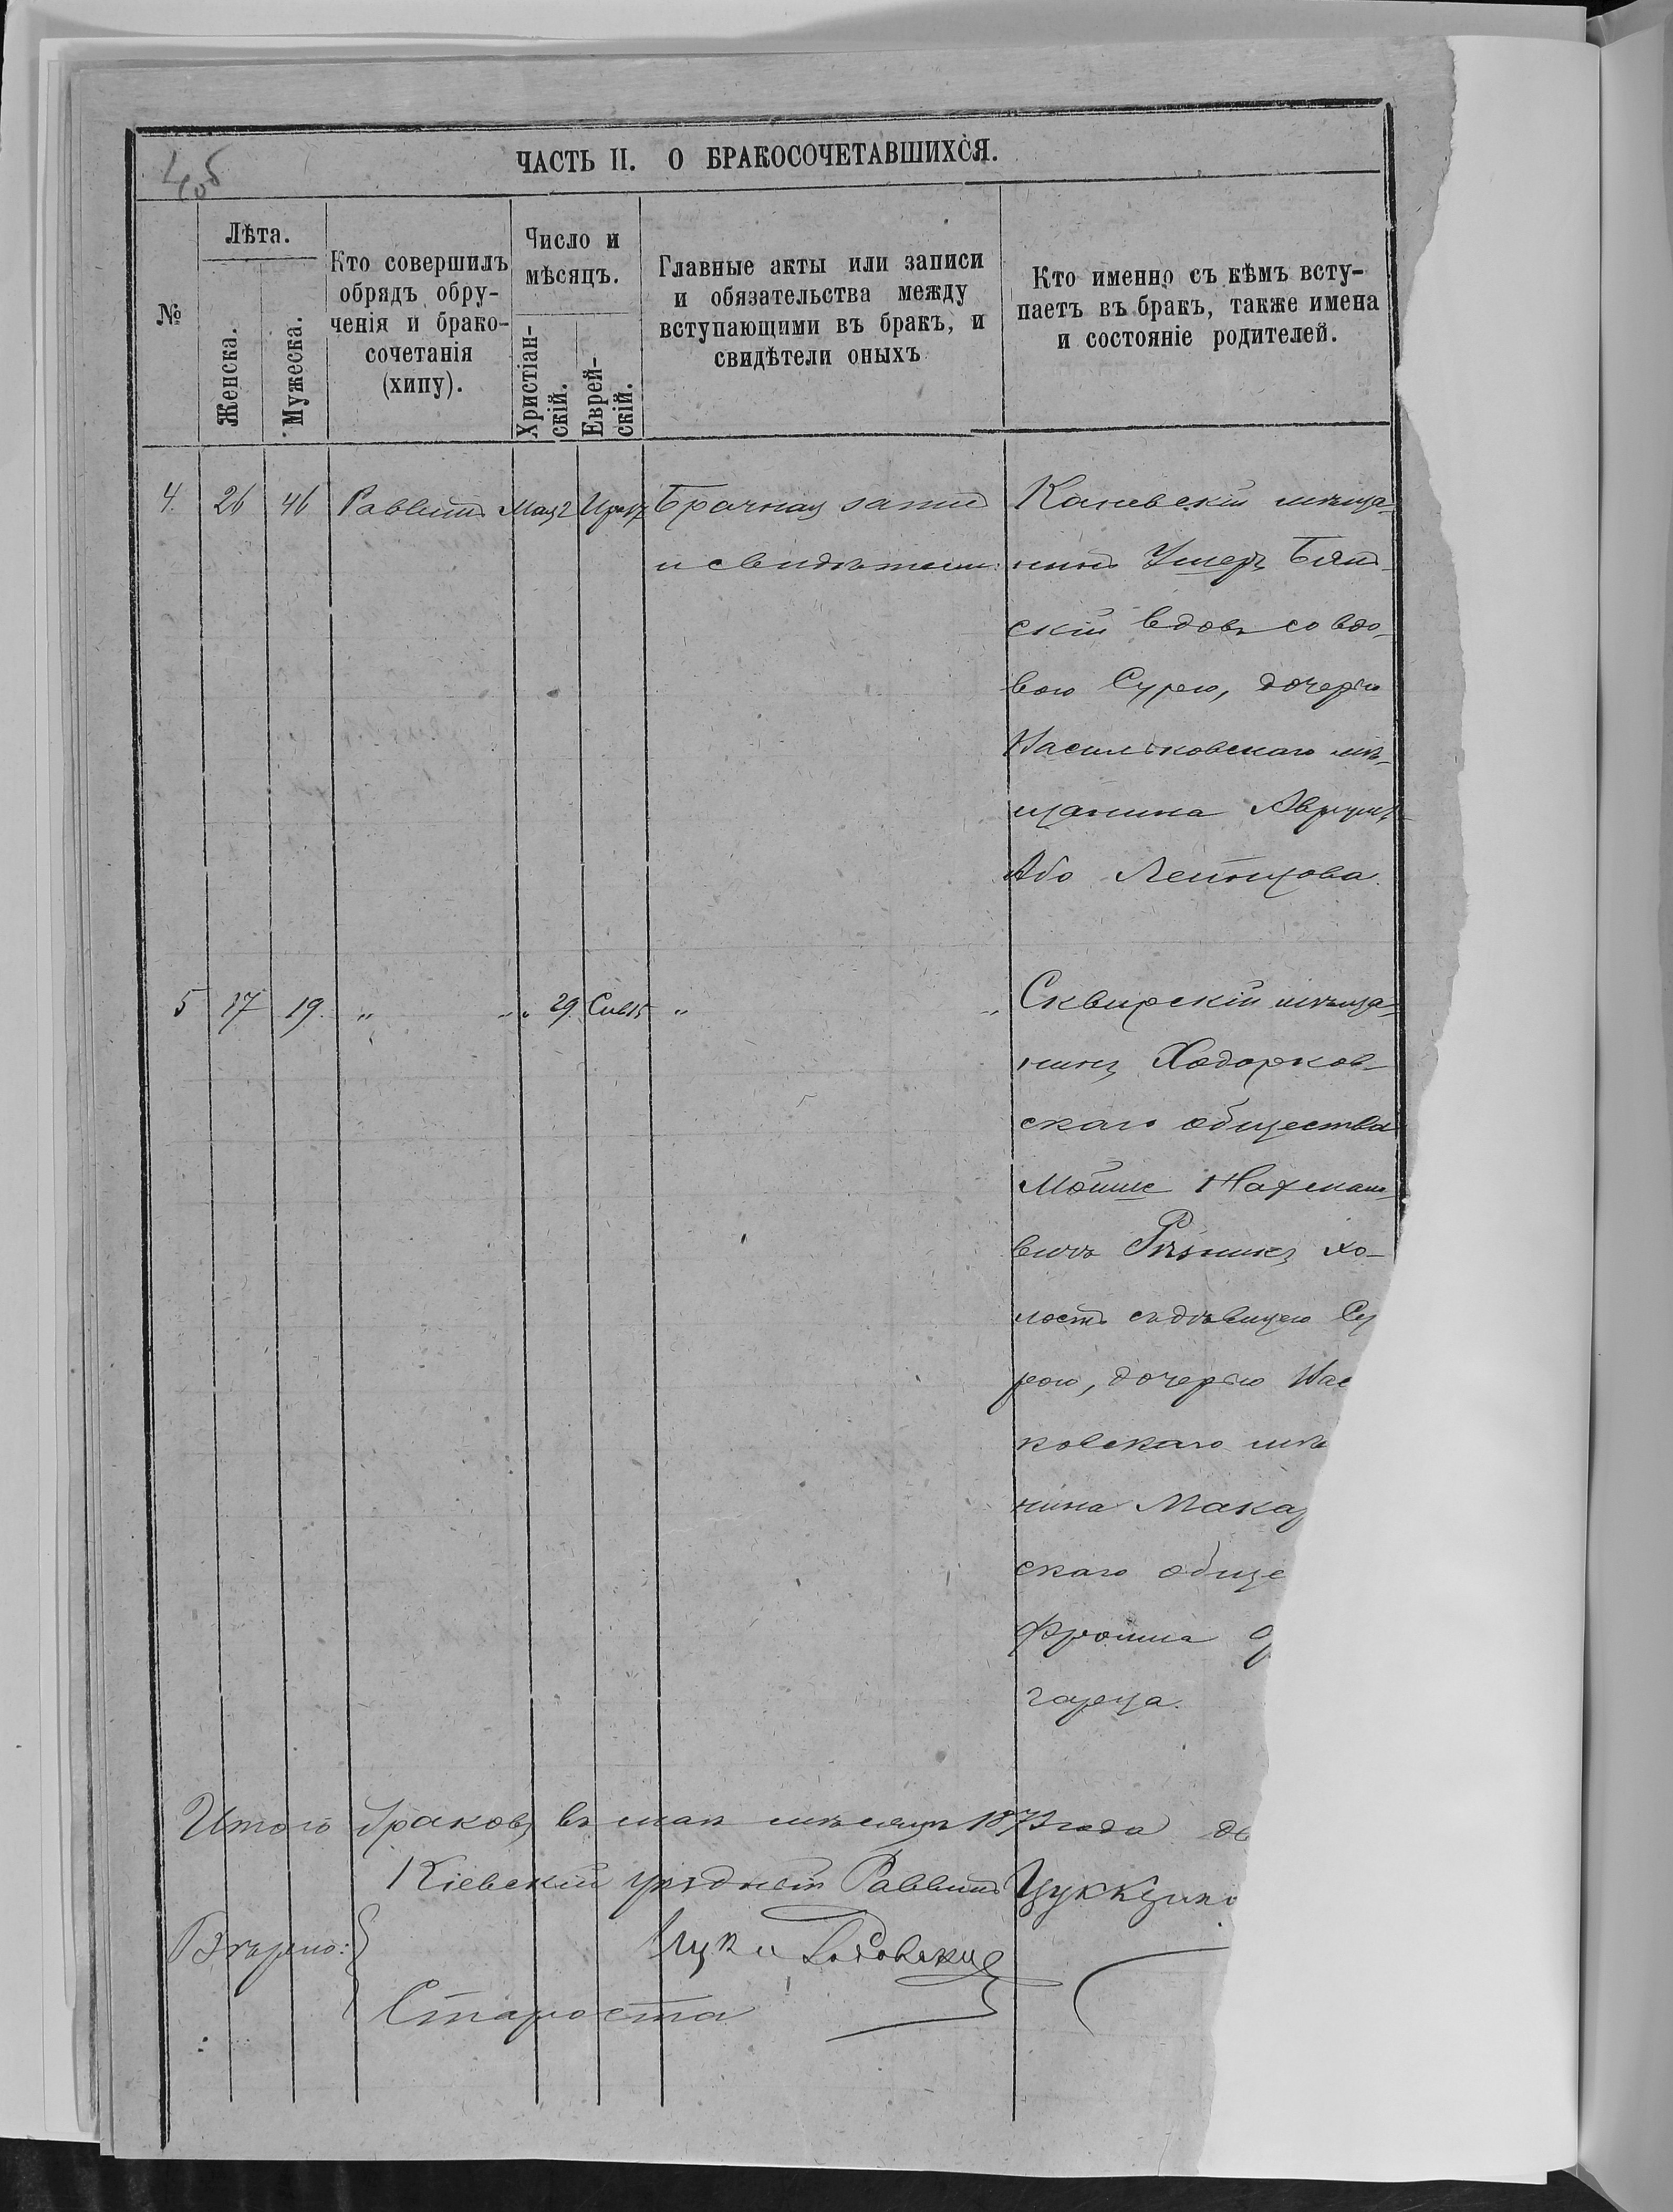 ЧАСТЬ II. О БРАКОСОЧЕТАВШИХСЯ.
№
Лѣта.
Женска.
Мужеска.
Кто совершилъ
обрядъ обру-
ченія и брако-
сочетанія
(хипу).
Число и
мѣсяцъ.
Христіан-
скій.
Еврей-
скій.
Главные акты или записи
и обязательства между
вступающими въ бракъ, и
свидѣтели оныхъ
Кто именно съ кѣмъ всту-
паетъ въ бракъ, также имена
и состояніе родителей.
4. 26 46 Раввинъ Мая 2 Брачная запис Каневскій мѣща-
и свидѣтели: нинъ Ушеръ
скій вдовъ со вдо-
вою Сурею, дочерью
Васильковскаго мѣ-
щанина Аврумъ
Або
5 17 19. „ „ 29. Сив 15 „ „ Сквирскій мѣща-
нинъ Ходорков-
скаго общества
Мойше Нахмано-
вичъ Рѣзникъ хо-
лостъ съ дѣвицею Су
рою, дочерью Вас
ковскаго мѣ
нина Макар
скаго обще
Фроима
гарца.
Итого браковъ въ маѣ мѣсяцѣ 1873 года дв
Кіевскій уѣздный Раввинъ Цуккерм
Вѣрно:
Староста